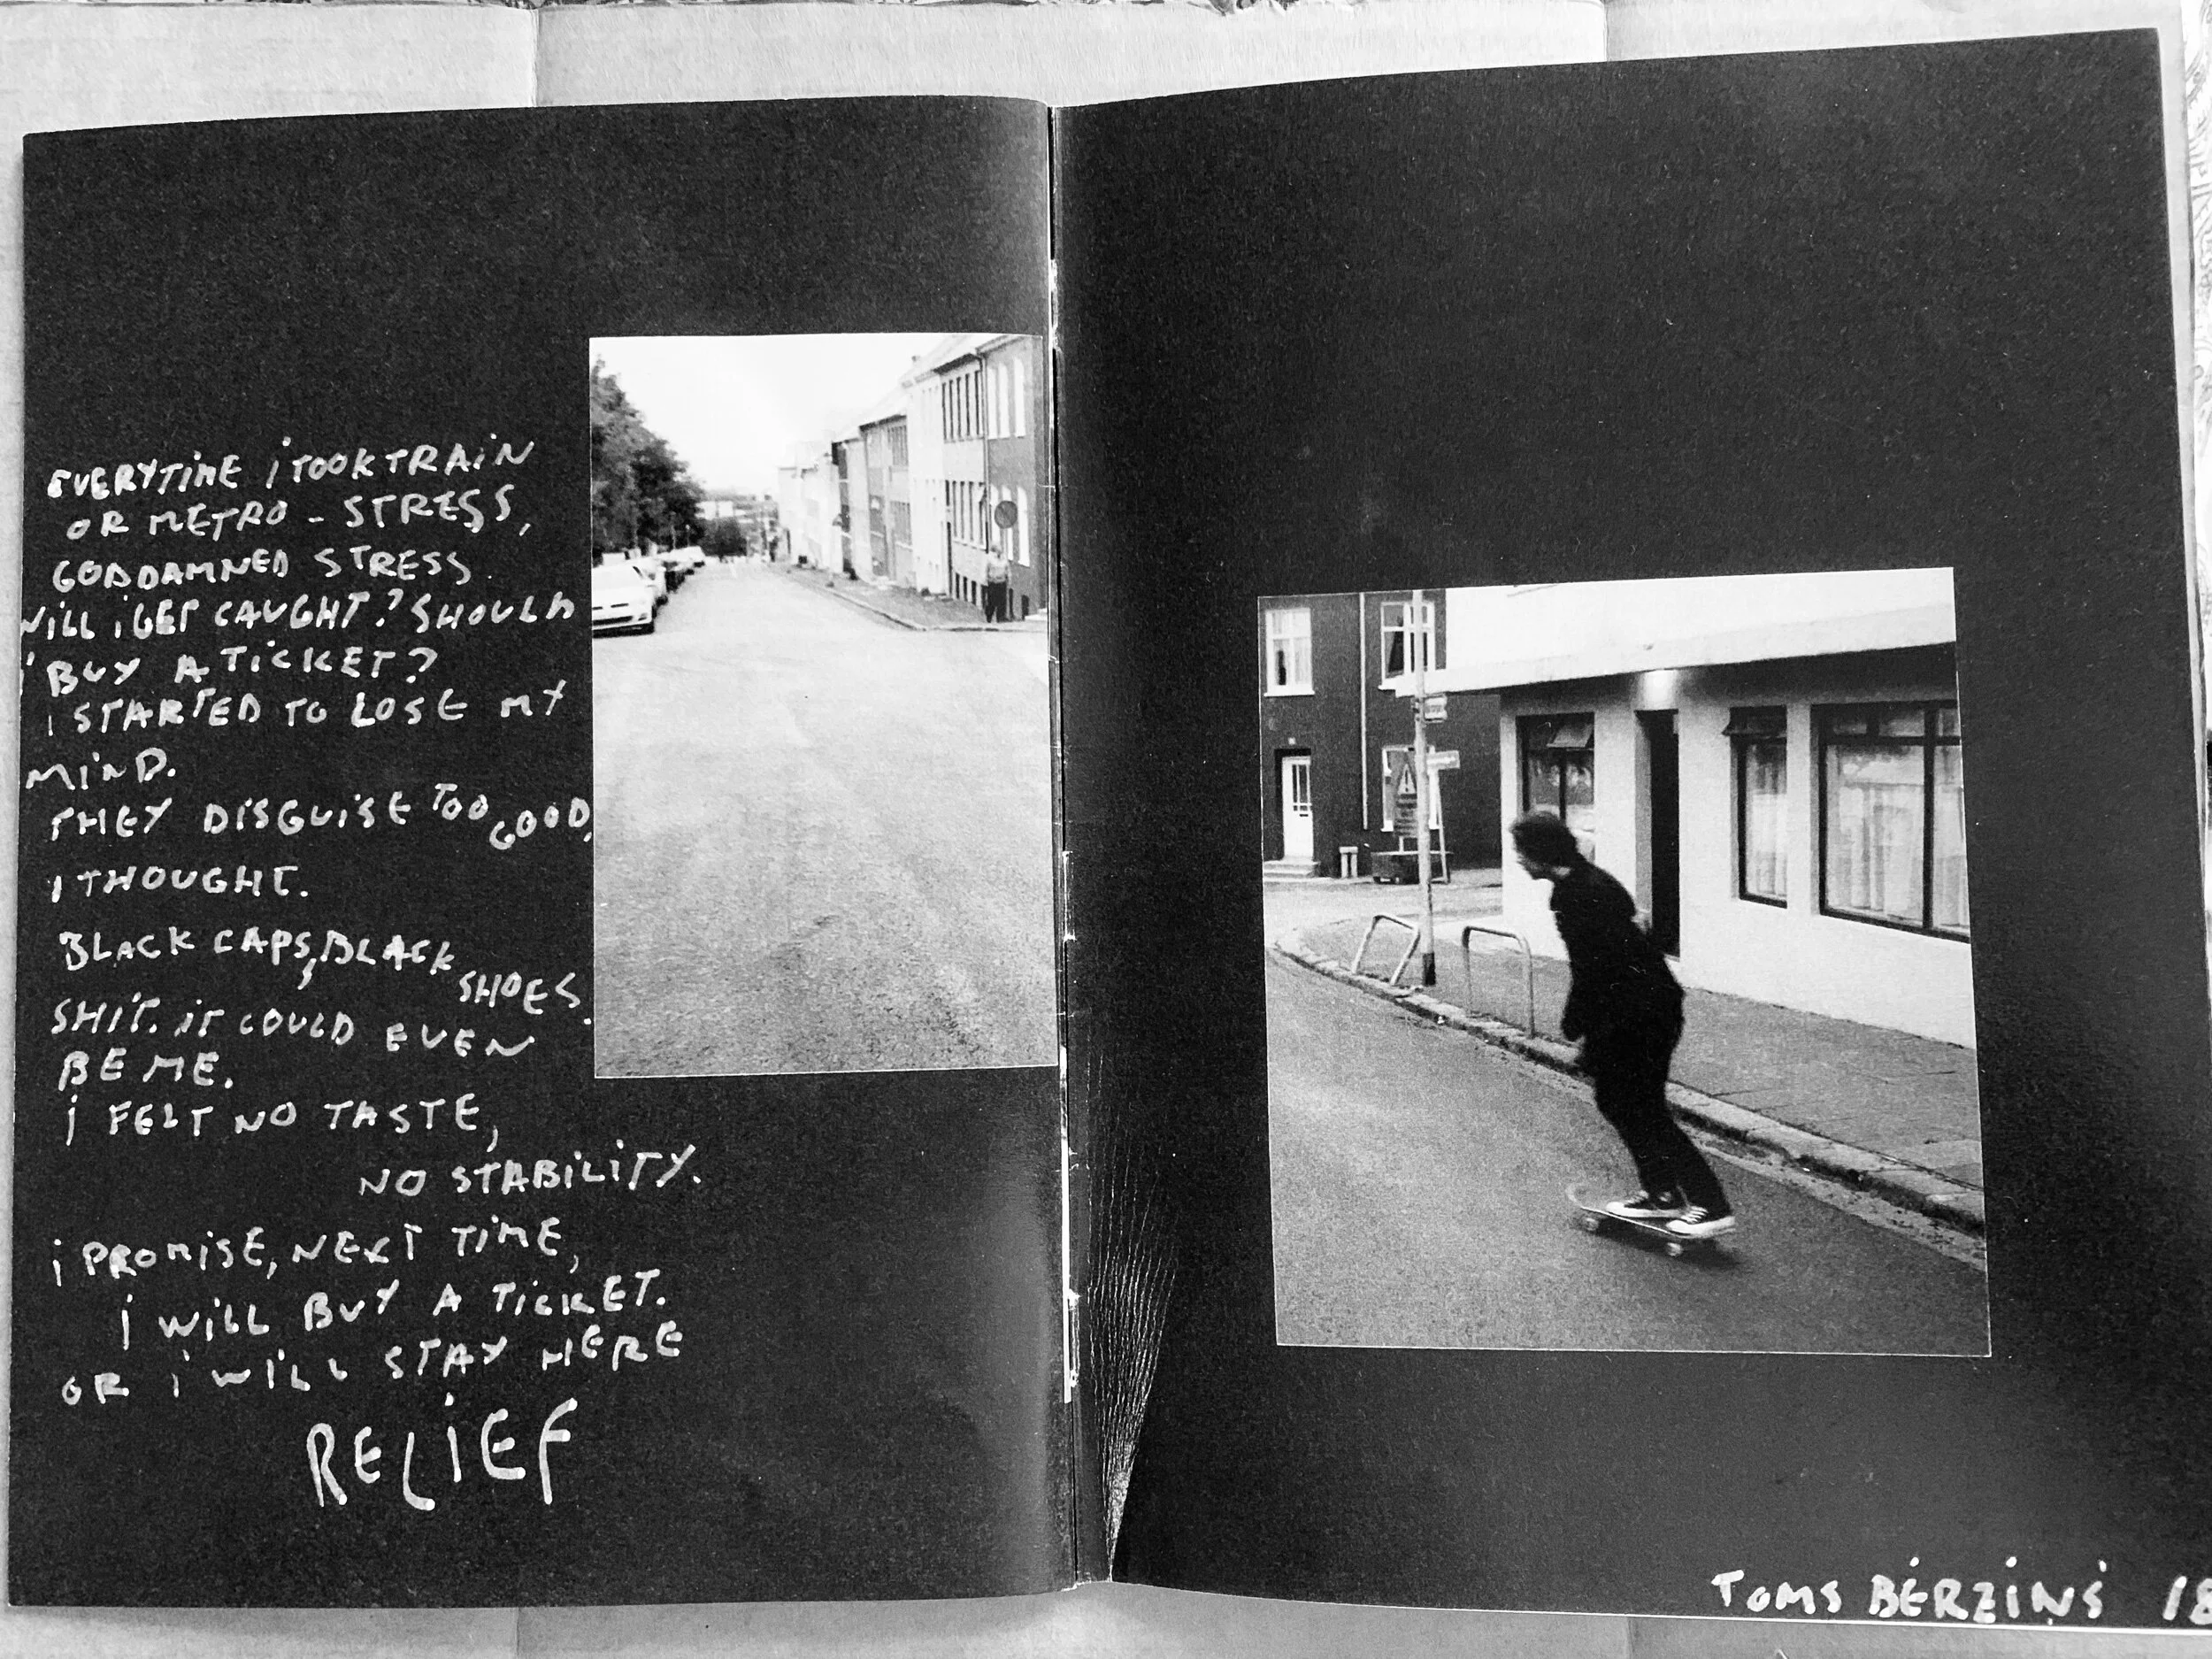 EVERYTIME i TOOK TRAiN
OR METRO - STRESS,
GODDAMNED STRESS.
WiLL i GET CAUGHT? SHOULD
i BUY A TiCKET?
i STARTED TO LOSE MY
MiND.
THEY DiSGUiSE TOO GOOD,
i THOUGHT.
BLACK CAPS, BLACK SHOES.
SHiT. iT COULD EVEN
BE ME.
i FELT NO TASTE,
NO STABiLiTY.
i PROMiSE, NEXT TiME,
i WiLL BUY A TiCKET.
OR i WiLL STAY HERE
RELiEF
TOMS BĒRZIŅŠ 18